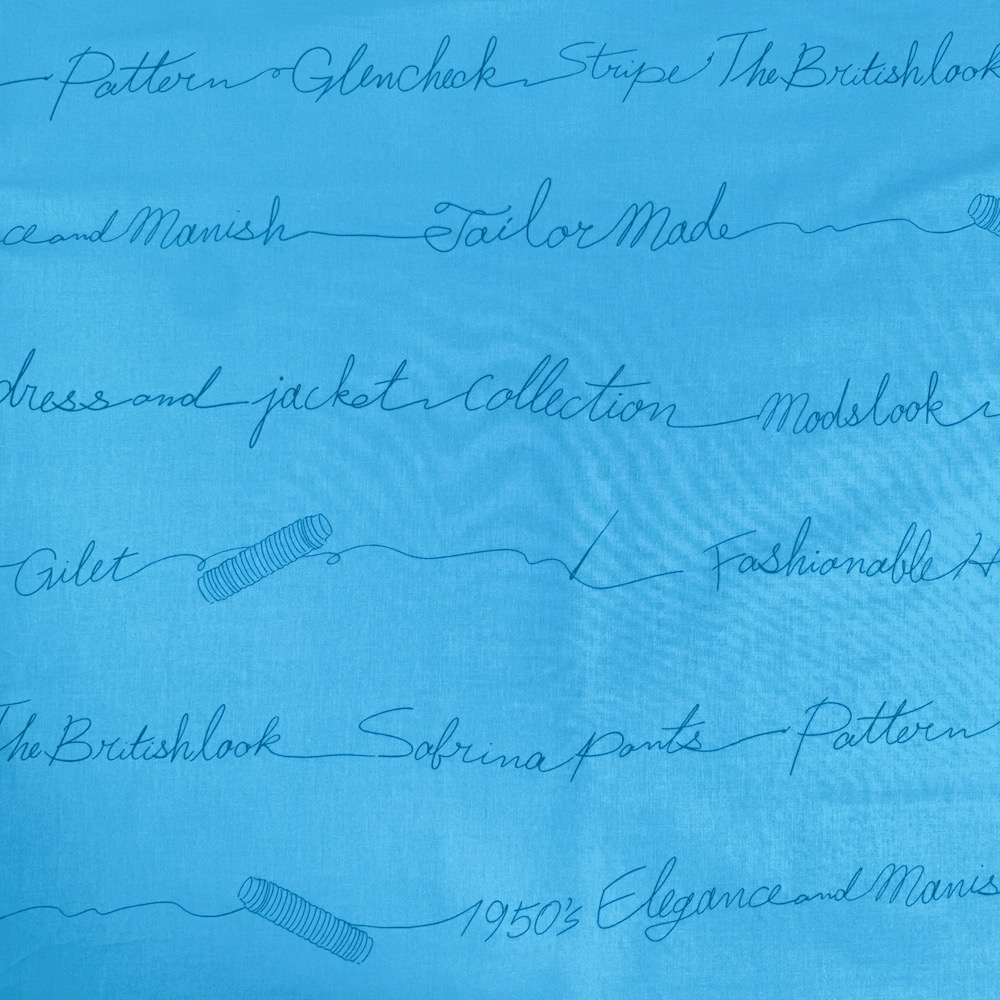 Pattern Glencheck Stripe The Britishlook
ce and Manish Tailor Made
dress and jacket Collection Modslook
Gilet Fashionable H
The Britishlook Sabrina pants Pattern
1950's Elegance and Manis